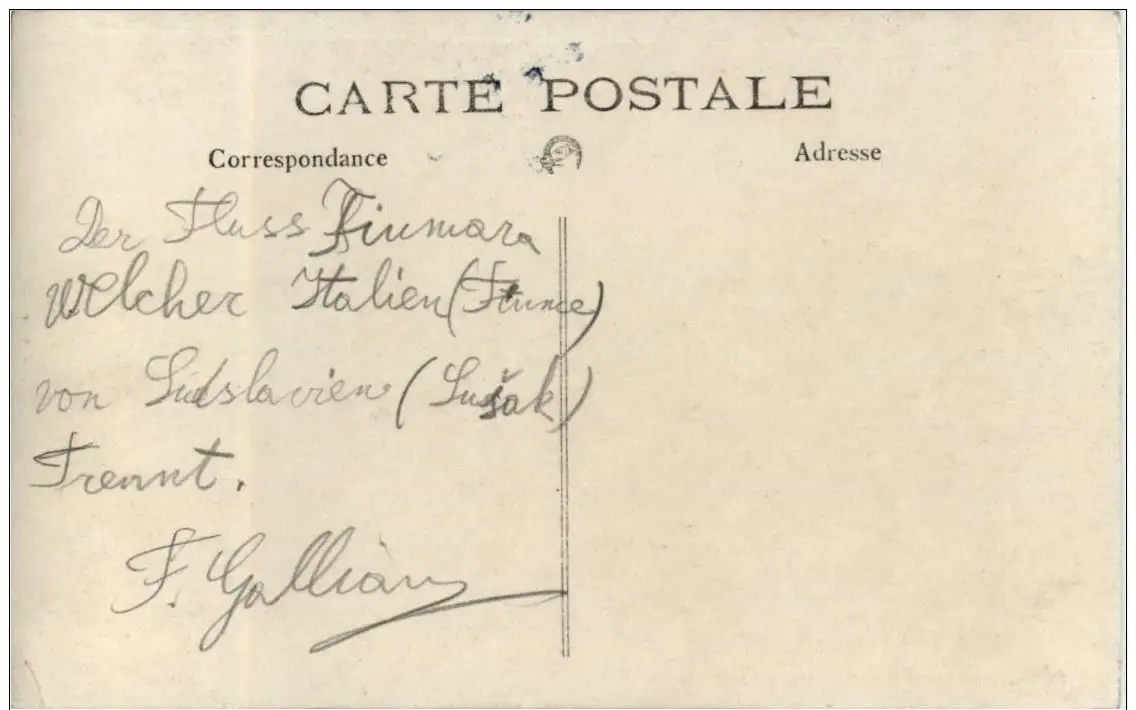 CARTE POSTALE
Correspondance
Adresse
Der Fluss Fiumara
Welcher Italien (Fiume)
von Südslavien (Sušak)
Trennt.
F. Gallian